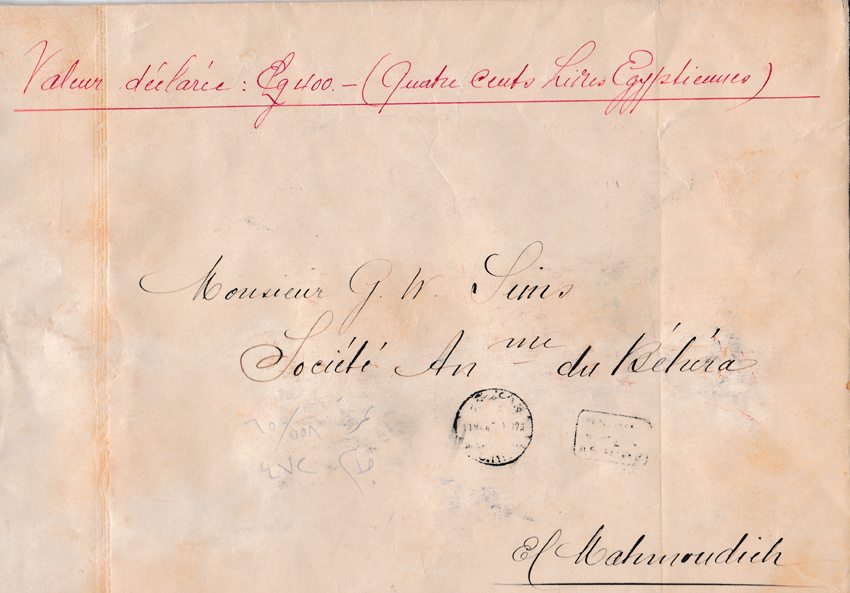 Valeur déclarée : £g 400.- (Quatre cents Livres Egyptiennes)
Monsieur G. W. Sims
Société An me du Béhéra
El Mahmoudieh